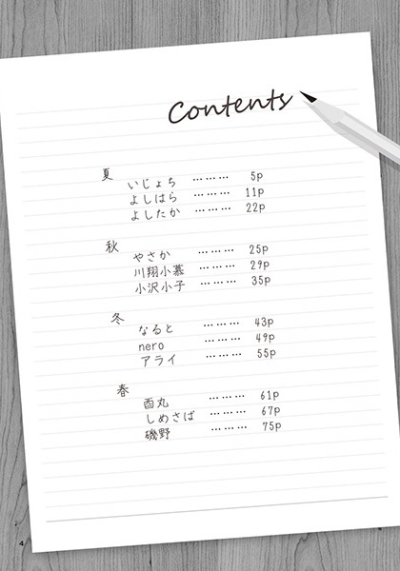 Contents
夏
いじょち ……… 5p
よしはら ……… 11p
よしたか ……… 22p
秋
やさか ……… 25p
川翔小慕 ……… 29p
小沢小子 ……… 35p
冬
なると ……… 43p
nero ……… 49p
アライ ……… 55p
春
酉丸 ……… 61p
しめさば ……… 67p
磯野 ……… 75p
4